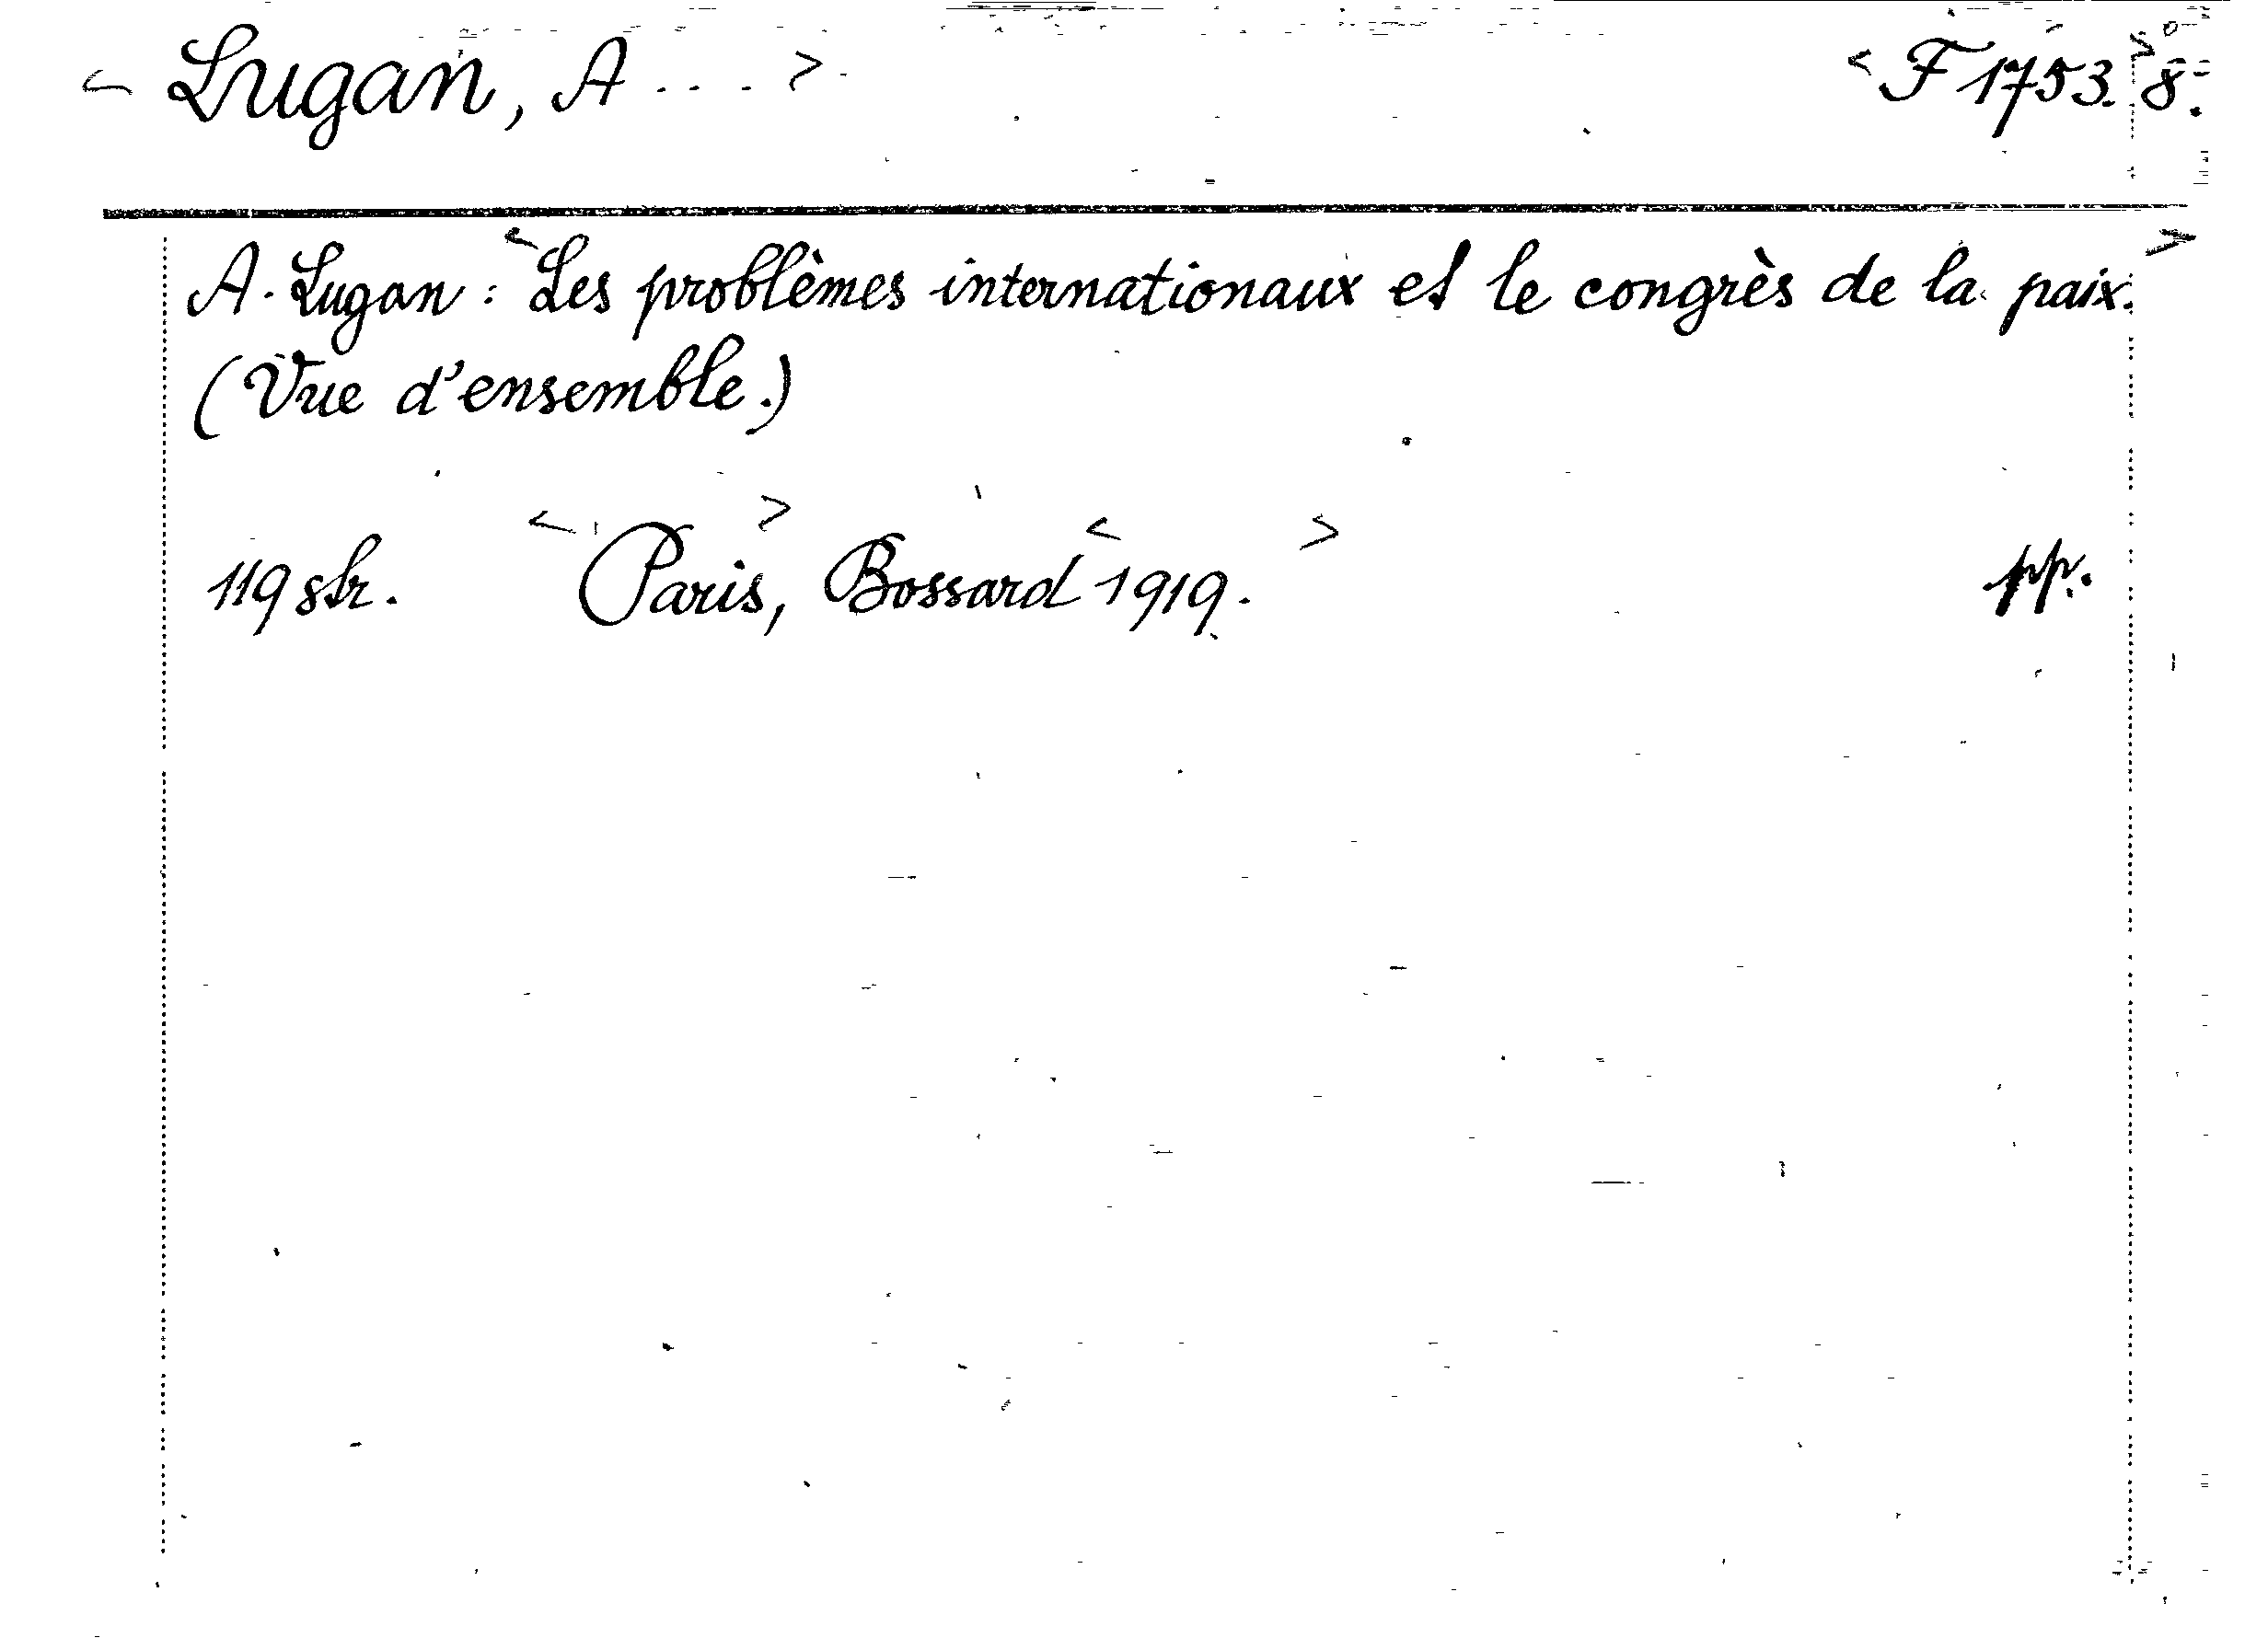 < Lugan, A . . . . >
< F 1753. > 8°.
A. Lugan: < Les problèmes internationaux et le congrès de la paix. >
(Vue d'ensemble.)
119 str. < Paris, > Bossard < 1919. > pp.